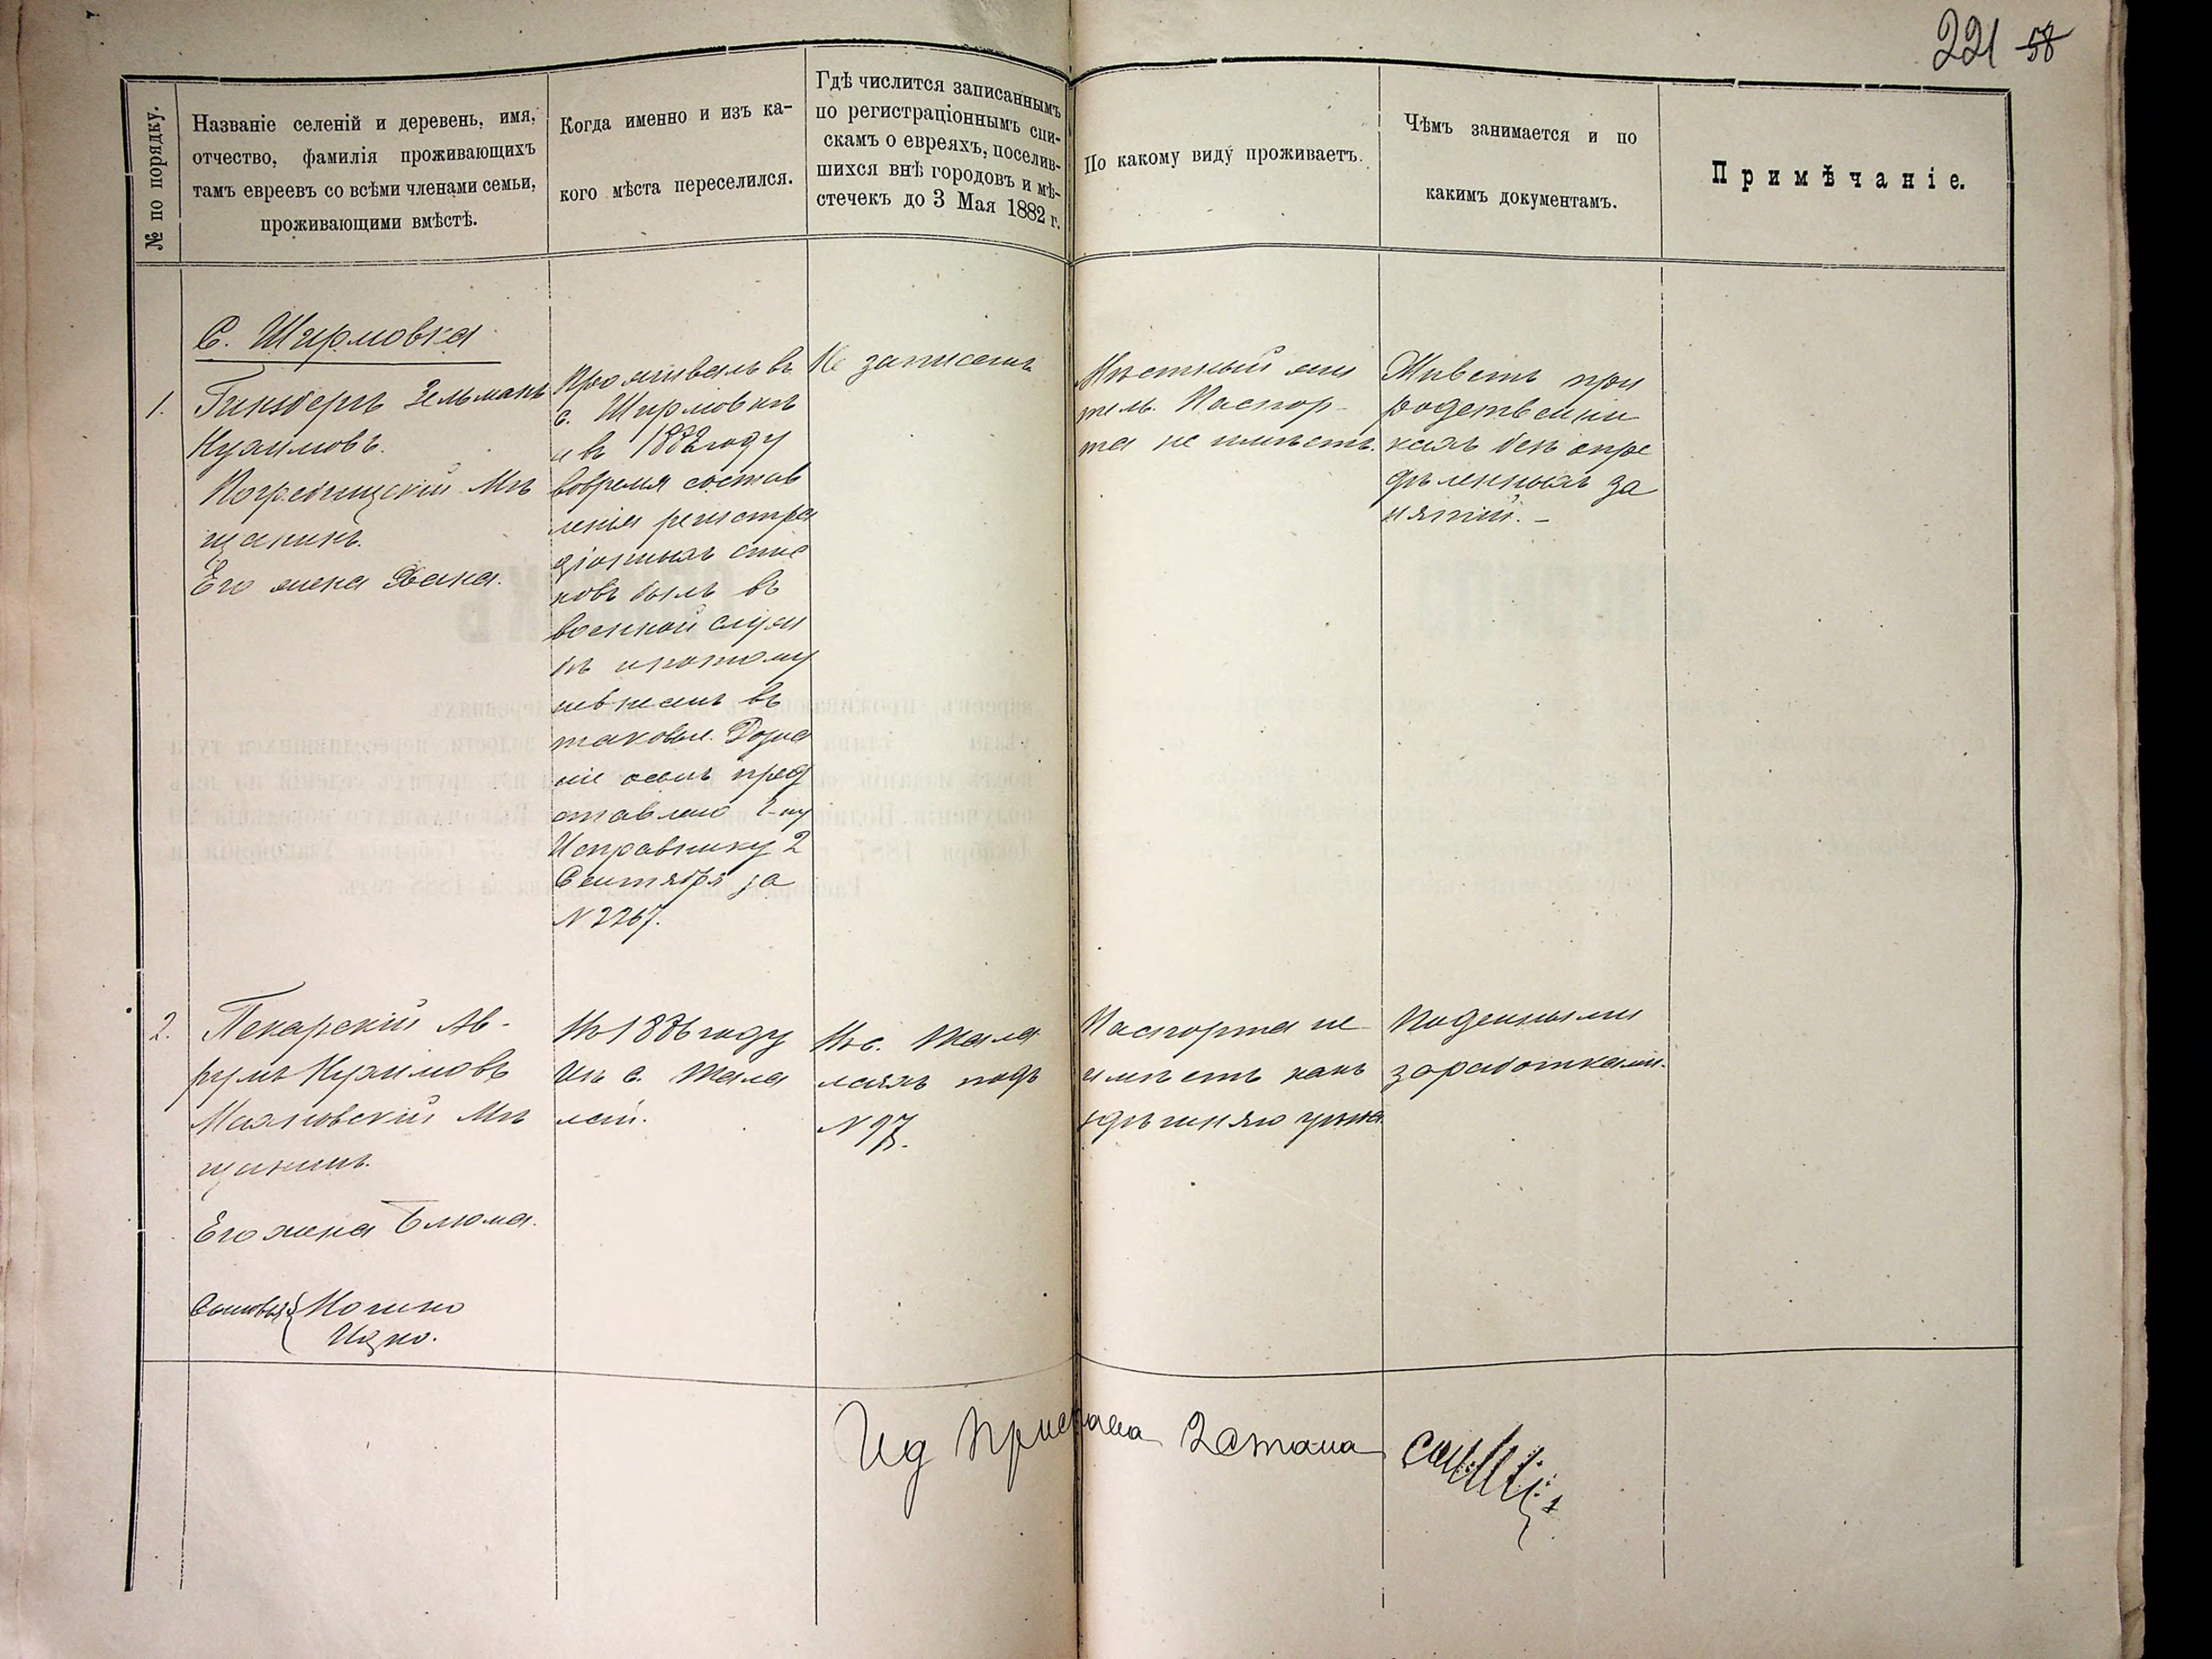 221 58
№ по порядку.
Названіе селеній и деревень, имя,
отчество, фамилія проживающихъ
тамъ евреевъ со всѣми членами семьи,
проживающими вмѣстѣ.
Когда именно и изъ ка-
кого мѣста переселился.
Гдѣ числится записаннымъ
по регистраціоннымъ спи-
скамъ о евреяхъ, поселив-
шихся внѣ городовъ и мѣ-
стечекъ до 3 Мая 1882 г.
По какому виду проживаетъ.
Чѣмъ занимается и по
какимъ документамъ.
Примѣчаніе.
С. Ширмовка
1.
Гинзбергъ Зельманъ
Нухимовъ.
Погребищскій Мѣ
щанинъ.
Его жена Хана.
Проживалъ въ
с. Ширмовкѣ
и въ 1882 году
вовремя состав
ленія регистра
ціонныхъ спис
ковъ былъ въ
военной служ
бѣ и потому
невнесенъ въ
таковые. Дозна
ніе осемъ пред
ставлено г-ну
Исправнику 2
Сентября за
N 2267.
Не записанъ
Мѣстный жи
тель. Паспор-
та не имѣетъ.
Живетъ при
родственни
кахъ безъ опре
дѣленныхъ за
нятій. –
2.
Пекарскій Ав-
румъ Нухимовъ
Махновскій Мѣ
щанинъ.
Его жена Блюма.
Сыновья { Мошко
Ицко.
Въ 1886 году
Изъ с. Жела
лей.
Въ с. Жела
ляхъ подъ
N 97.
Паспорта не
имѣетъ какъ
здѣшняго уѣзда
Поденными
заработками.
Ид Пристава 2 стана